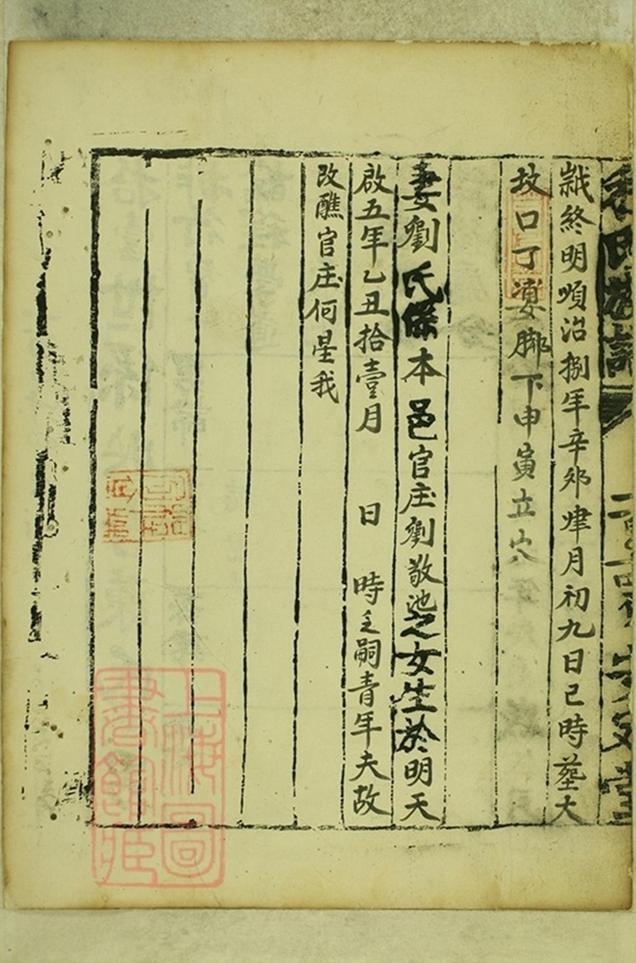 氏族譜
終明順治捌年辛卯肆月初九日巳時塟大
坟口丁宴脚下申寅立穴
妻劉氏係本邑官庄劉敬池之女生於明天
啟五年乙丑拾壹月 日 時乏嗣青年夫故
改醮官庄何星我
上海圖書館藏